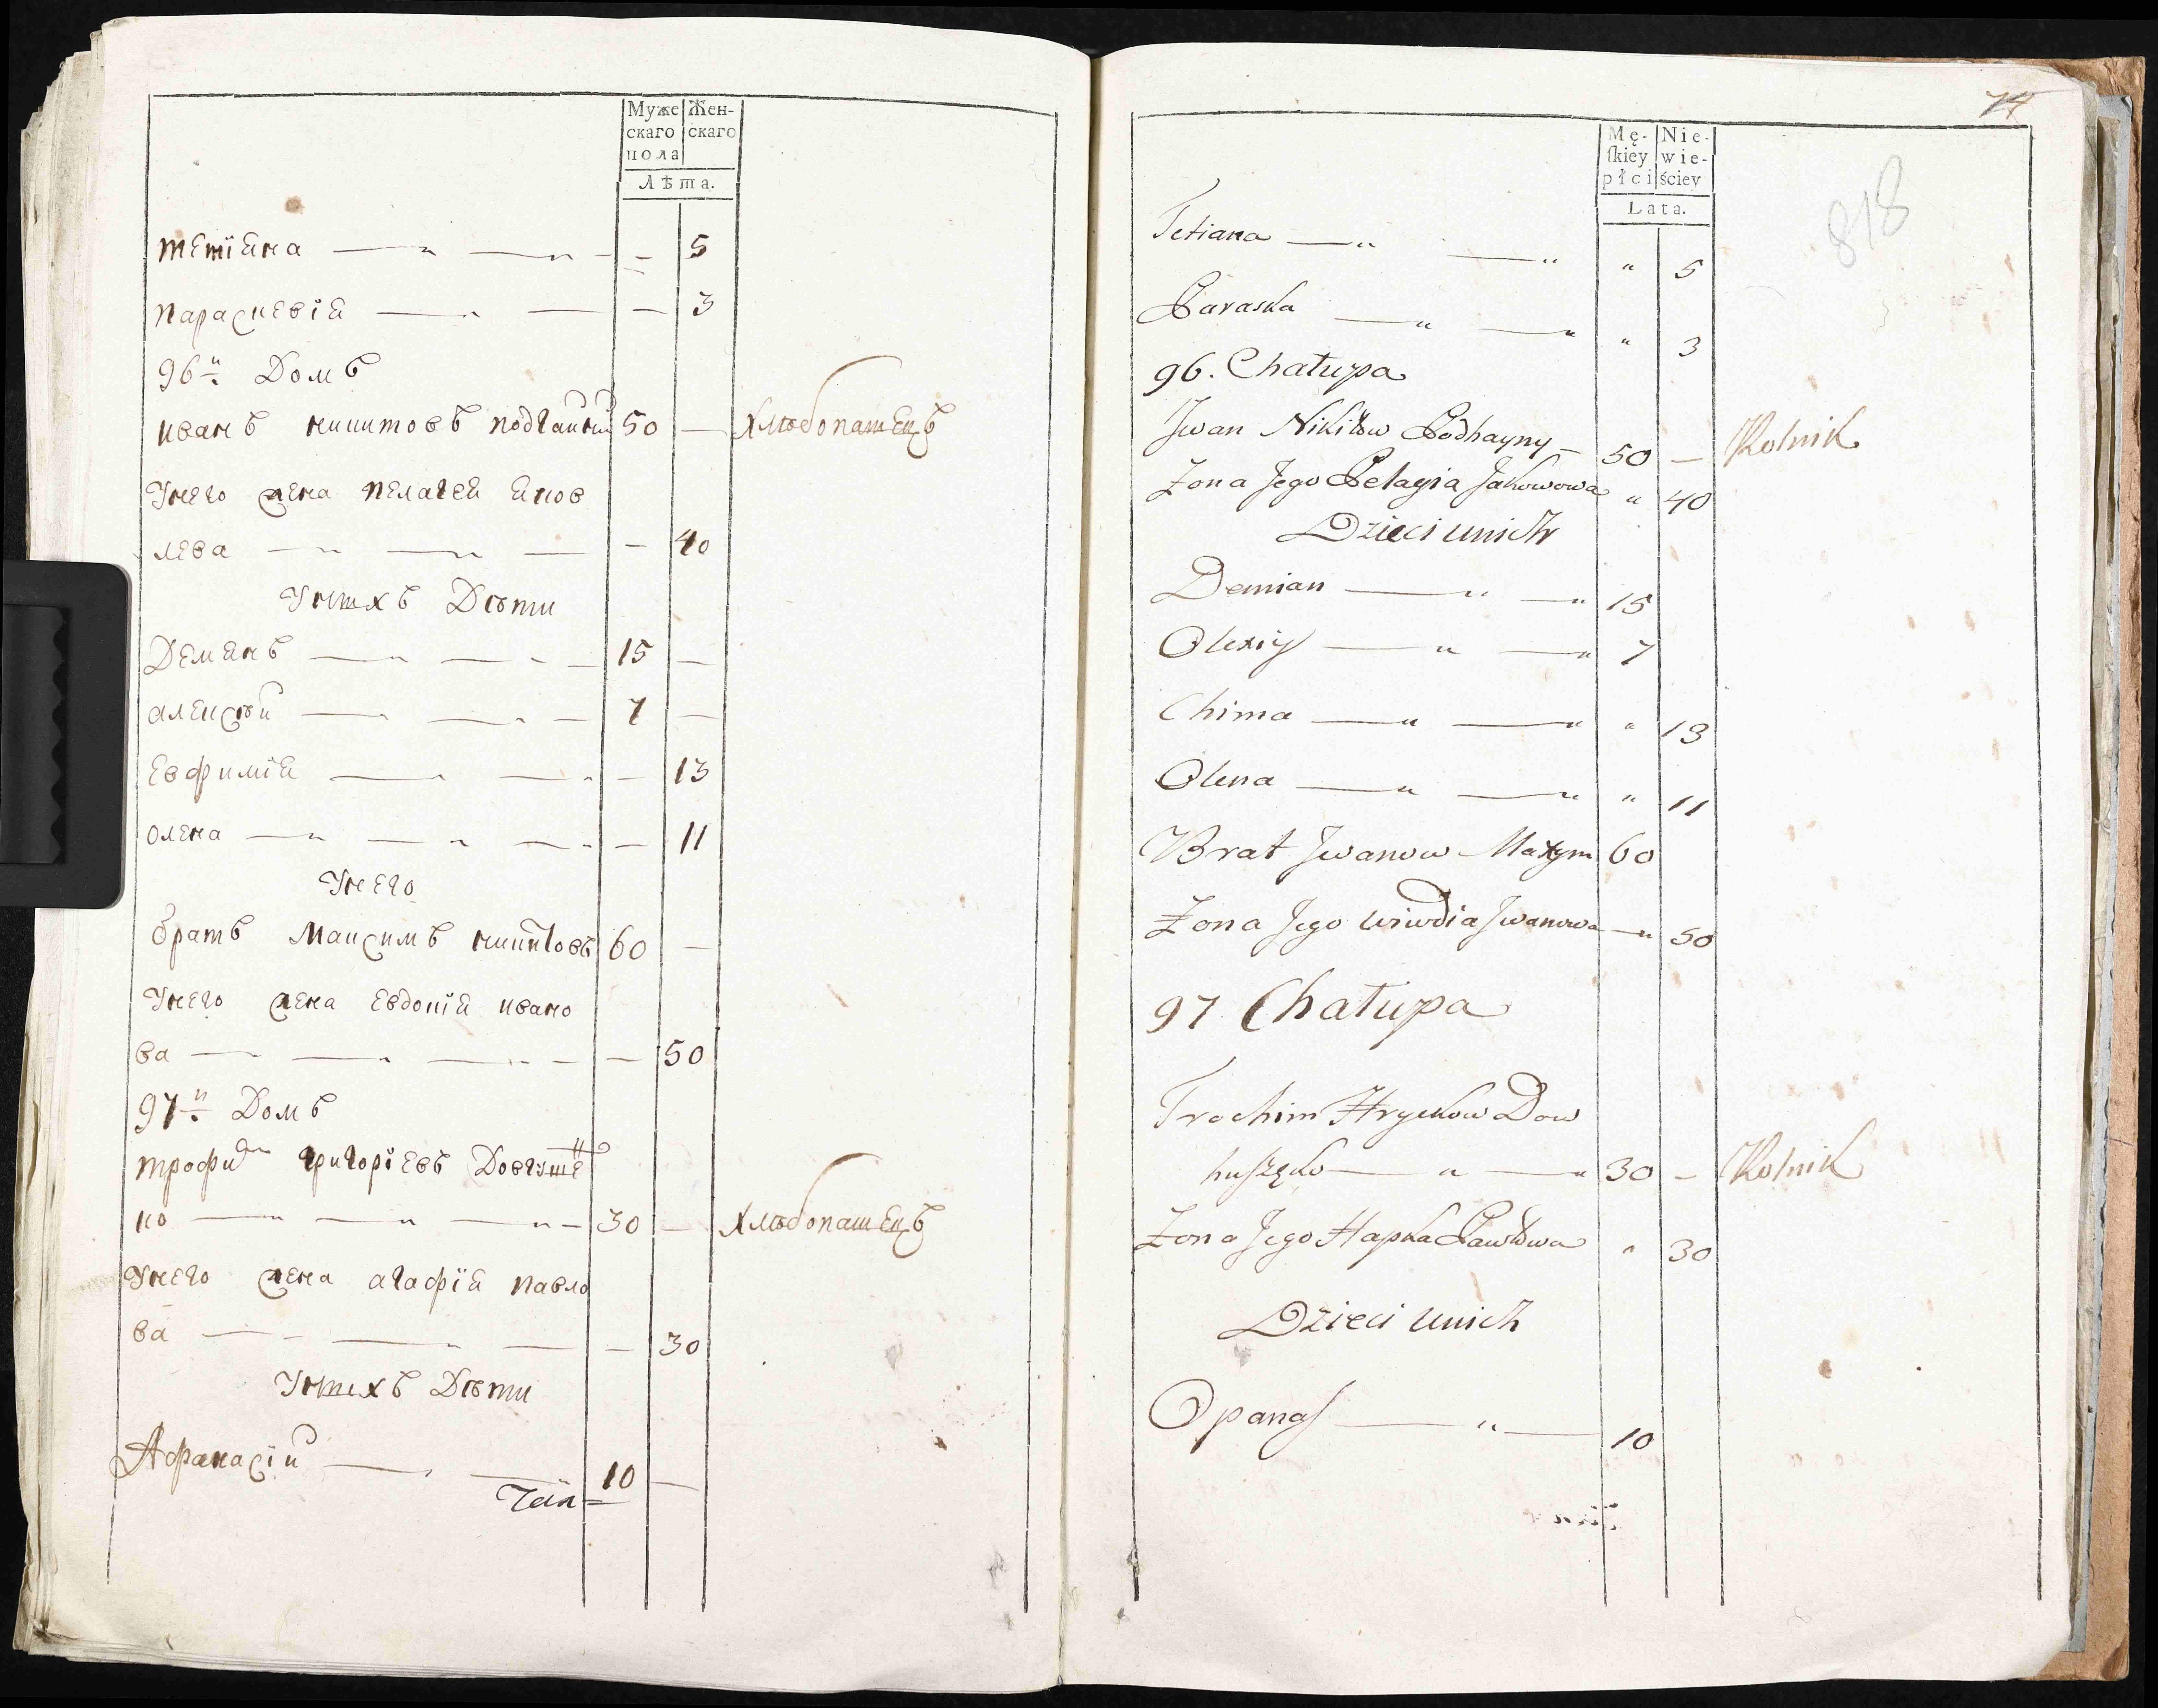 Муже Жен-
скаго скаго
пола
Лѣта.
тетіяна 5
параскевія 3
96й Домъ
иванъ никитовъ подгайный 50 — Хлѣбопашецъ
Унего жена пелагея яков
лева — 40
Унихъ Дѣти
Демянъ 15 —
алексѣй 7 —
евфимія — 13
олена — 11
Унего
братъ Максимъ никитовъ 60 —
Унего жена евдокія ивано
ва — 50
97й Домъ
трофим григоріевъ Довгуше
ко 30 — Хлѣбопашецъ
Унего жена агафія павло
ва — 30
Унихъ Дѣти
Афанасій 10 —
Mę- Nie-
skiey wie-
płci ściey
Lata.
818
Tetiana " 5
Paraska " 3
96. Chałupa
Jwan Nikitow Podhayny 50 — Rolnik
Żona Jego Pelagia Jakowowa " 40
Dzieci unich
Demian 15
Olexiy 7
Chima " 13
Olena " 11
Brat Jwanow Maxym 60
Żona Jego wiwdia Jwanowa " 50
97 Chałupa
Trochim Hryckow Dow
huszęko 30 — Rolnik
Żona Jego Hapka Pawłowa " 30
Dzieci unich
Opanas 10